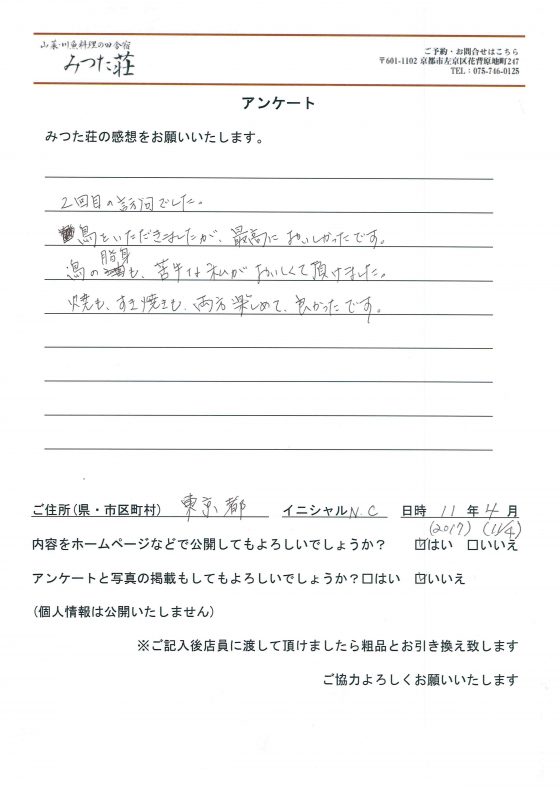 山菜・川魚料理の田舎宿
みつた荘
ご予約・お問合せはこちら
〒601-1102 京都市左京区花背原地町247
TEL：075-746-0125
アンケート
みつた荘の感想をお願いいたします。
2回目の訪問でした。
鳥をいただきましたが、最高においしかったです。
脂身
鳥のも、苦手な私がおいしくて頂けました。
焼も、すき焼きも、両方楽しめて、良かったです。
ご住所(県・市区町村) 東京都 イニシャル N.C 日時 11 年 4 月
(2017) (11/4)
内容をホームページなどで公開してもよろしいでしょうか？ ☑はい □いいえ
アンケートと写真の掲載もしてもよろしいでしょうか？□はい ☑いいえ
(個人情報は公開いたしません)
※ご記入後店員に渡して頂けましたら粗品とお引き換え致します
ご協力よろしくお願いいたします